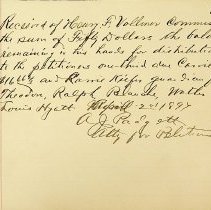 Received of Henry F. Vollmer Commis
the sum of Fifty Dollars the bala
remaining in his hands for distributio
to the petitioners one third due Carri
and Karrie Keefer guardian
Theodore, Ralph Blanche, Walter
Louis Hyatt April 2nd 1897
A J Padgett
Atty for Petition